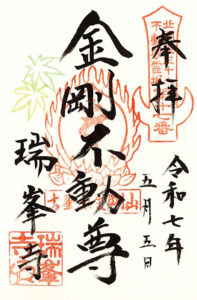 奉拝
令和七年
五月五日
金剛不動尊
瑞峯寺